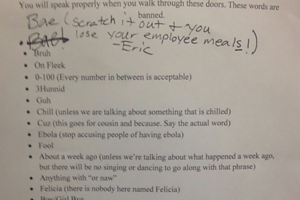 You will speak properly when you walk through these doors. These words are
banned.
Bae (scratch it out & you
lose your employee meals!)
-Eric
• Bae!
• Bruh
• On Fleek
• 0-100 (Every number in between is acceptable)
• 3Hunnid
• Guh
• Chill (unless we are talking about something that is chilled)
• Cuz (this goes for cousin and because. Say the actual word)
• Ebola (stop accusing people of having ebola)
• Fool
• About a week ago (unless we're talking about what happened a week ago,
but there will be no singing or dancing to go along with that phrase)
• Anything with "or naw"
• Felicia (there is nobody here named Felicia)
• Boy/Girl Bye